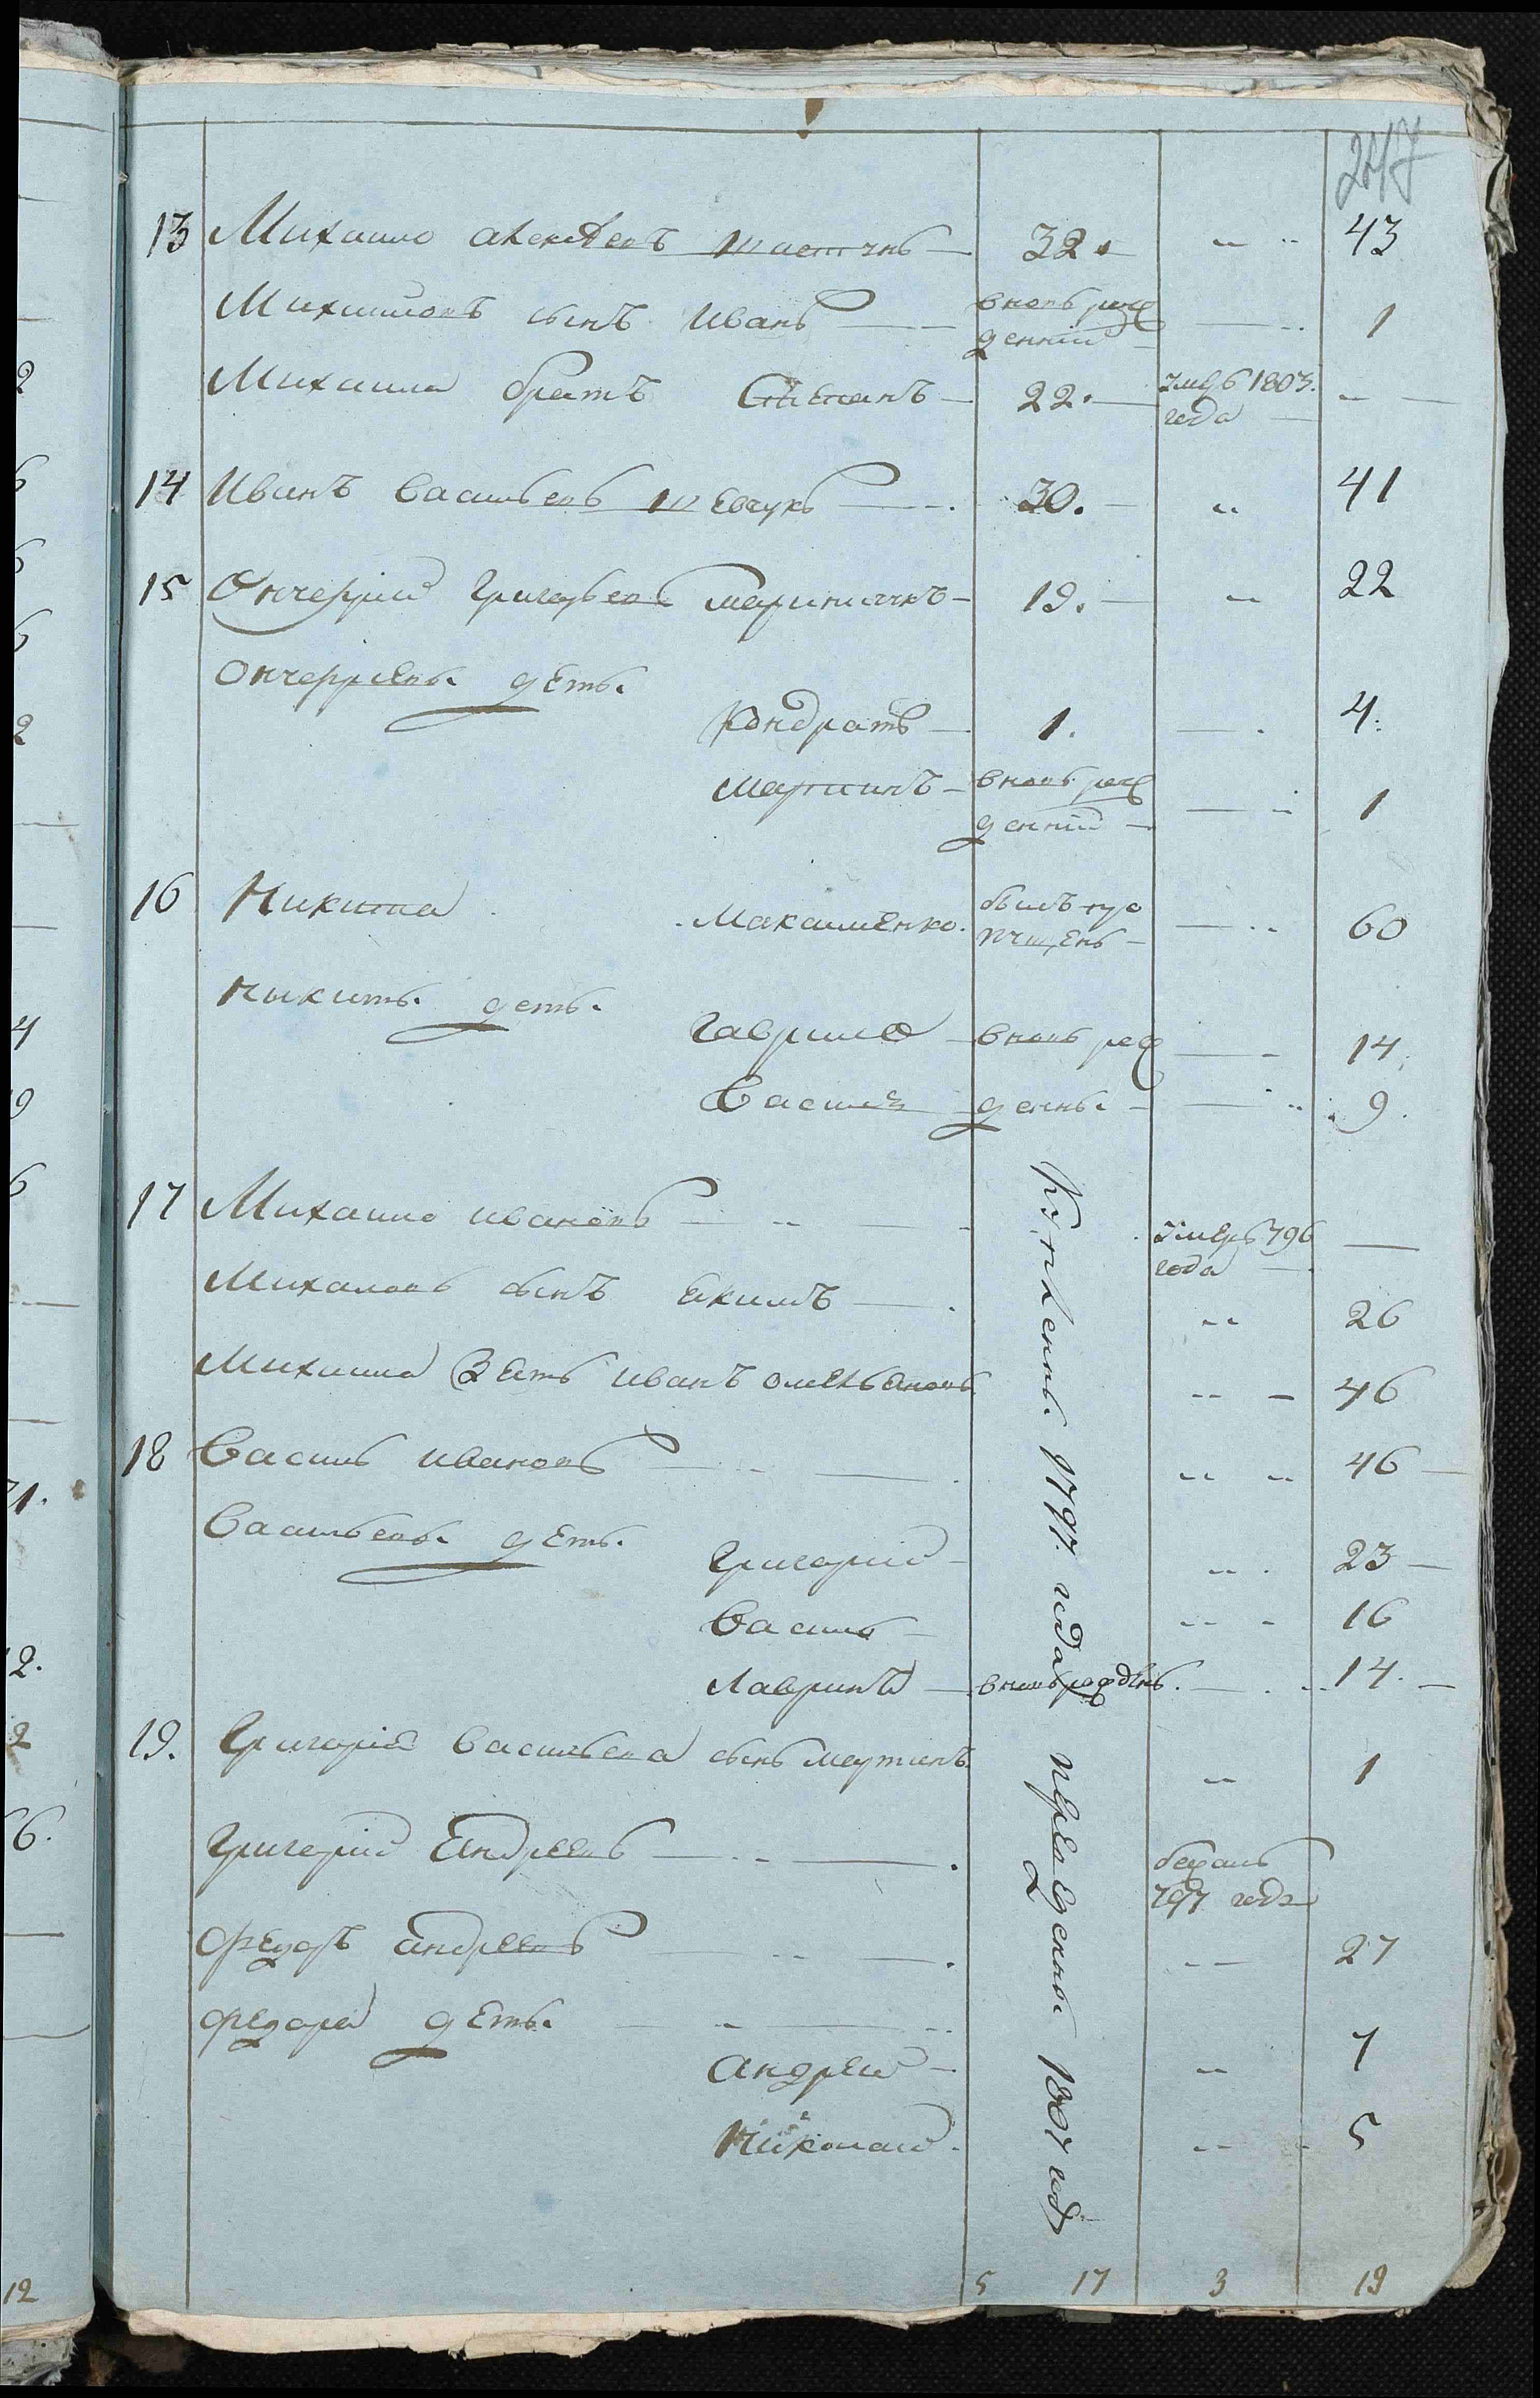 247
13 Михаило алексѣевъ 32. 43
Михаиловъ сынъ Иванъ вновь рож 1
денній
Михаила братъ Степанъ 22. Умеръ 1803.
года
14 Иванъ Васильевъ шевчукъ 30. 41
15 Григорьевъ 19. 22
дети.
Кондратъ 1. 4.
Мартинъ вновь рож 1
денній
16 Никита Макаменко. былъ про 60
пущенъ
Никиты дети.
Гаврило вновь рож 14.
Василь денны. 9.
17 Михаило ивановъ умеръ 796
года
Михаловъ сынъ Екимъ 26
Михаила Зеть иванъ омельяновъ 46
18 Василь ивановъ 46
Васильевы дети.
Григорій 23
Василь 16
Лавринъ вновь рожденъ. 14.
19. Григорій Васильева сынъ Мартинъ 1
Григорій Андреевъ бежалъ
797 года
Федоръ андреевъ 27
Федора дети.
Андрей 7
Николай 5
Купленны. 1797. года переведенны. 1807 году
5 17 3 19
2
6
6
6
6
2
4
9
6
71.
12.
2
66.
12